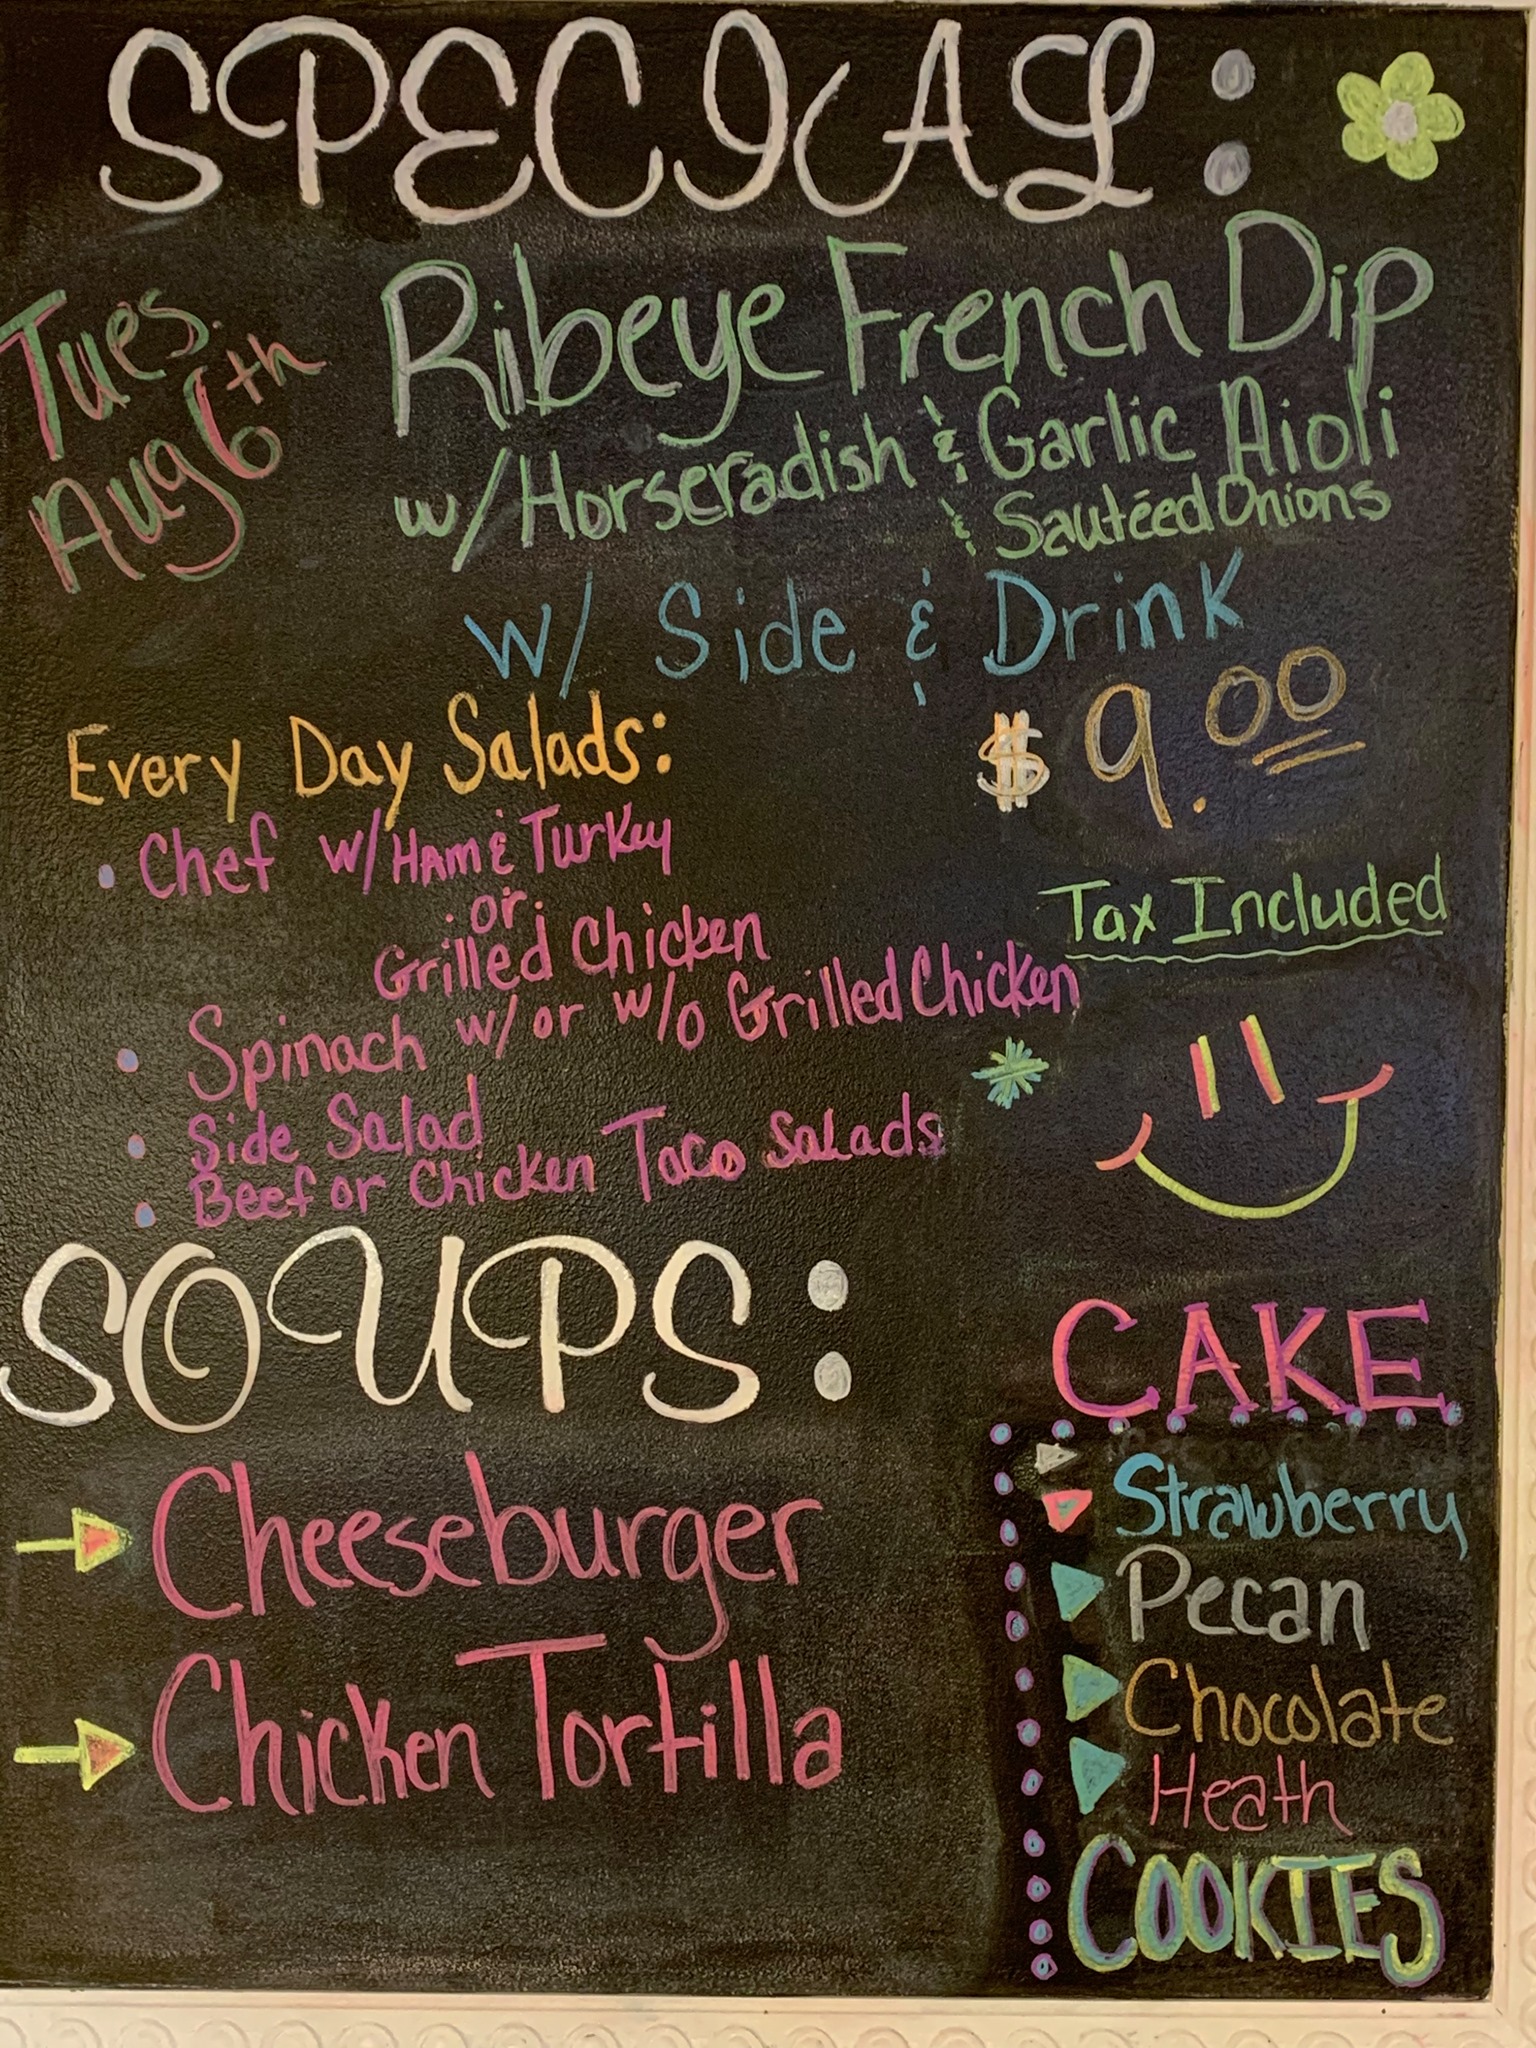 SPECIAL:
Tues.
Aug 6th
Ribeye French Dip
w/ Horseradish & Garlic Aioli
& Sautéed Onions
w/ Side & Drink
$9.00
Tax Included
Every Day Salads:
• Chef w/ Ham & Turkey
or
Grilled Chicken
• Spinach w/ or w/o Grilled Chicken
• Side Salad
• Beef or Chicken Taco Salads
SOUPS:
Cheeseburger
Chicken Tortilla
CAKE
Strawberry
Pecan
Chocolate
Heath
COOKIES